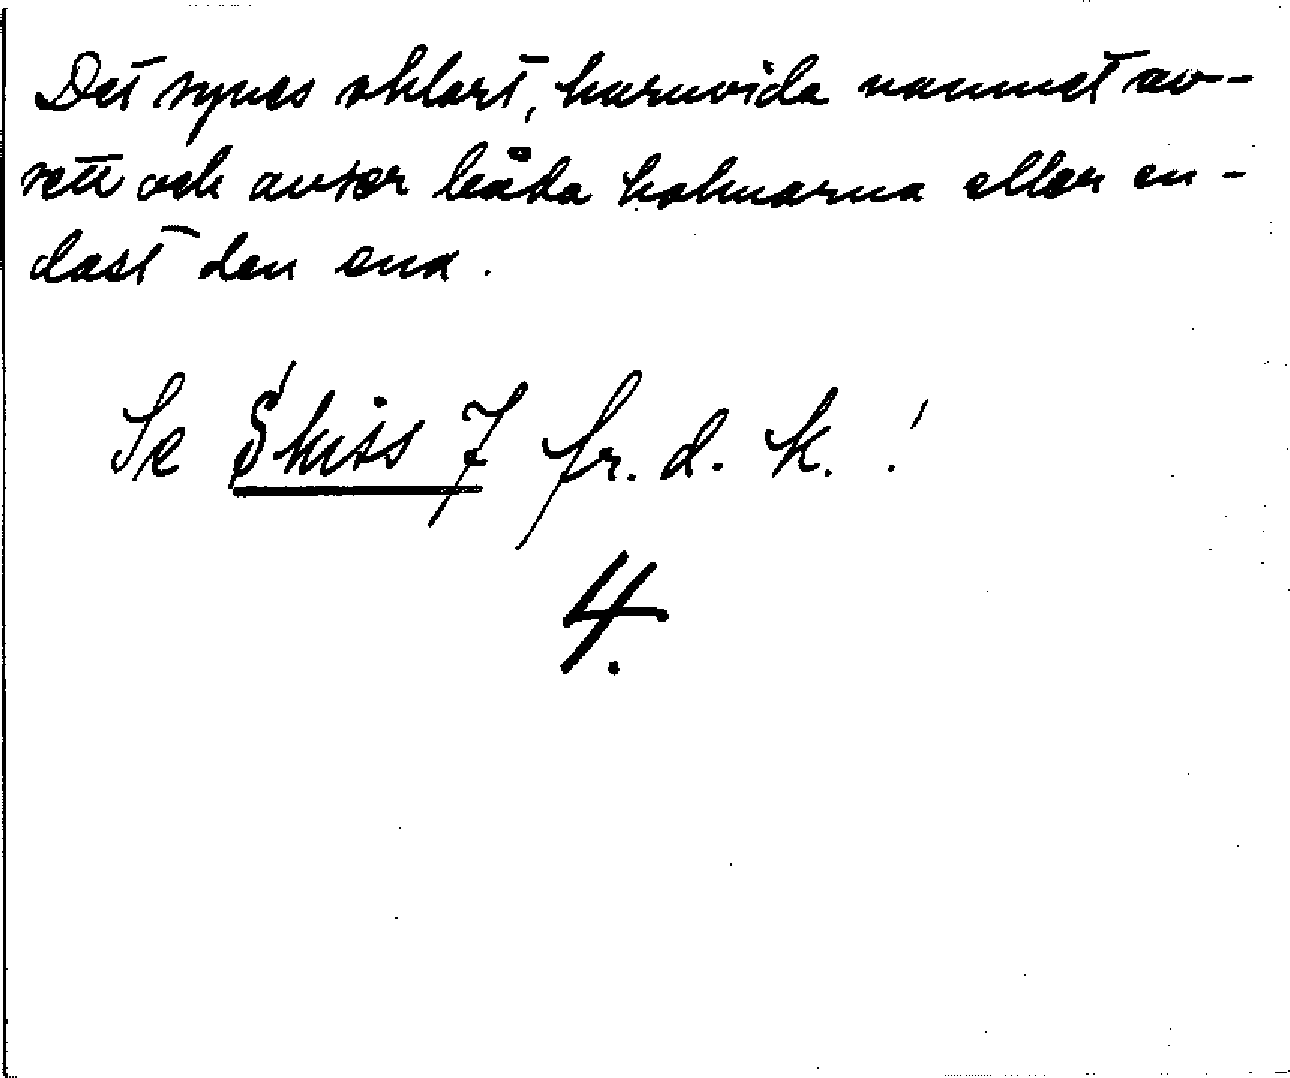 Det synes oklart, huruvida namnet av-
sett och avser båda holmarna eller en-
dast den ena.
Se Skiss 7 fr. d. k.!
4.